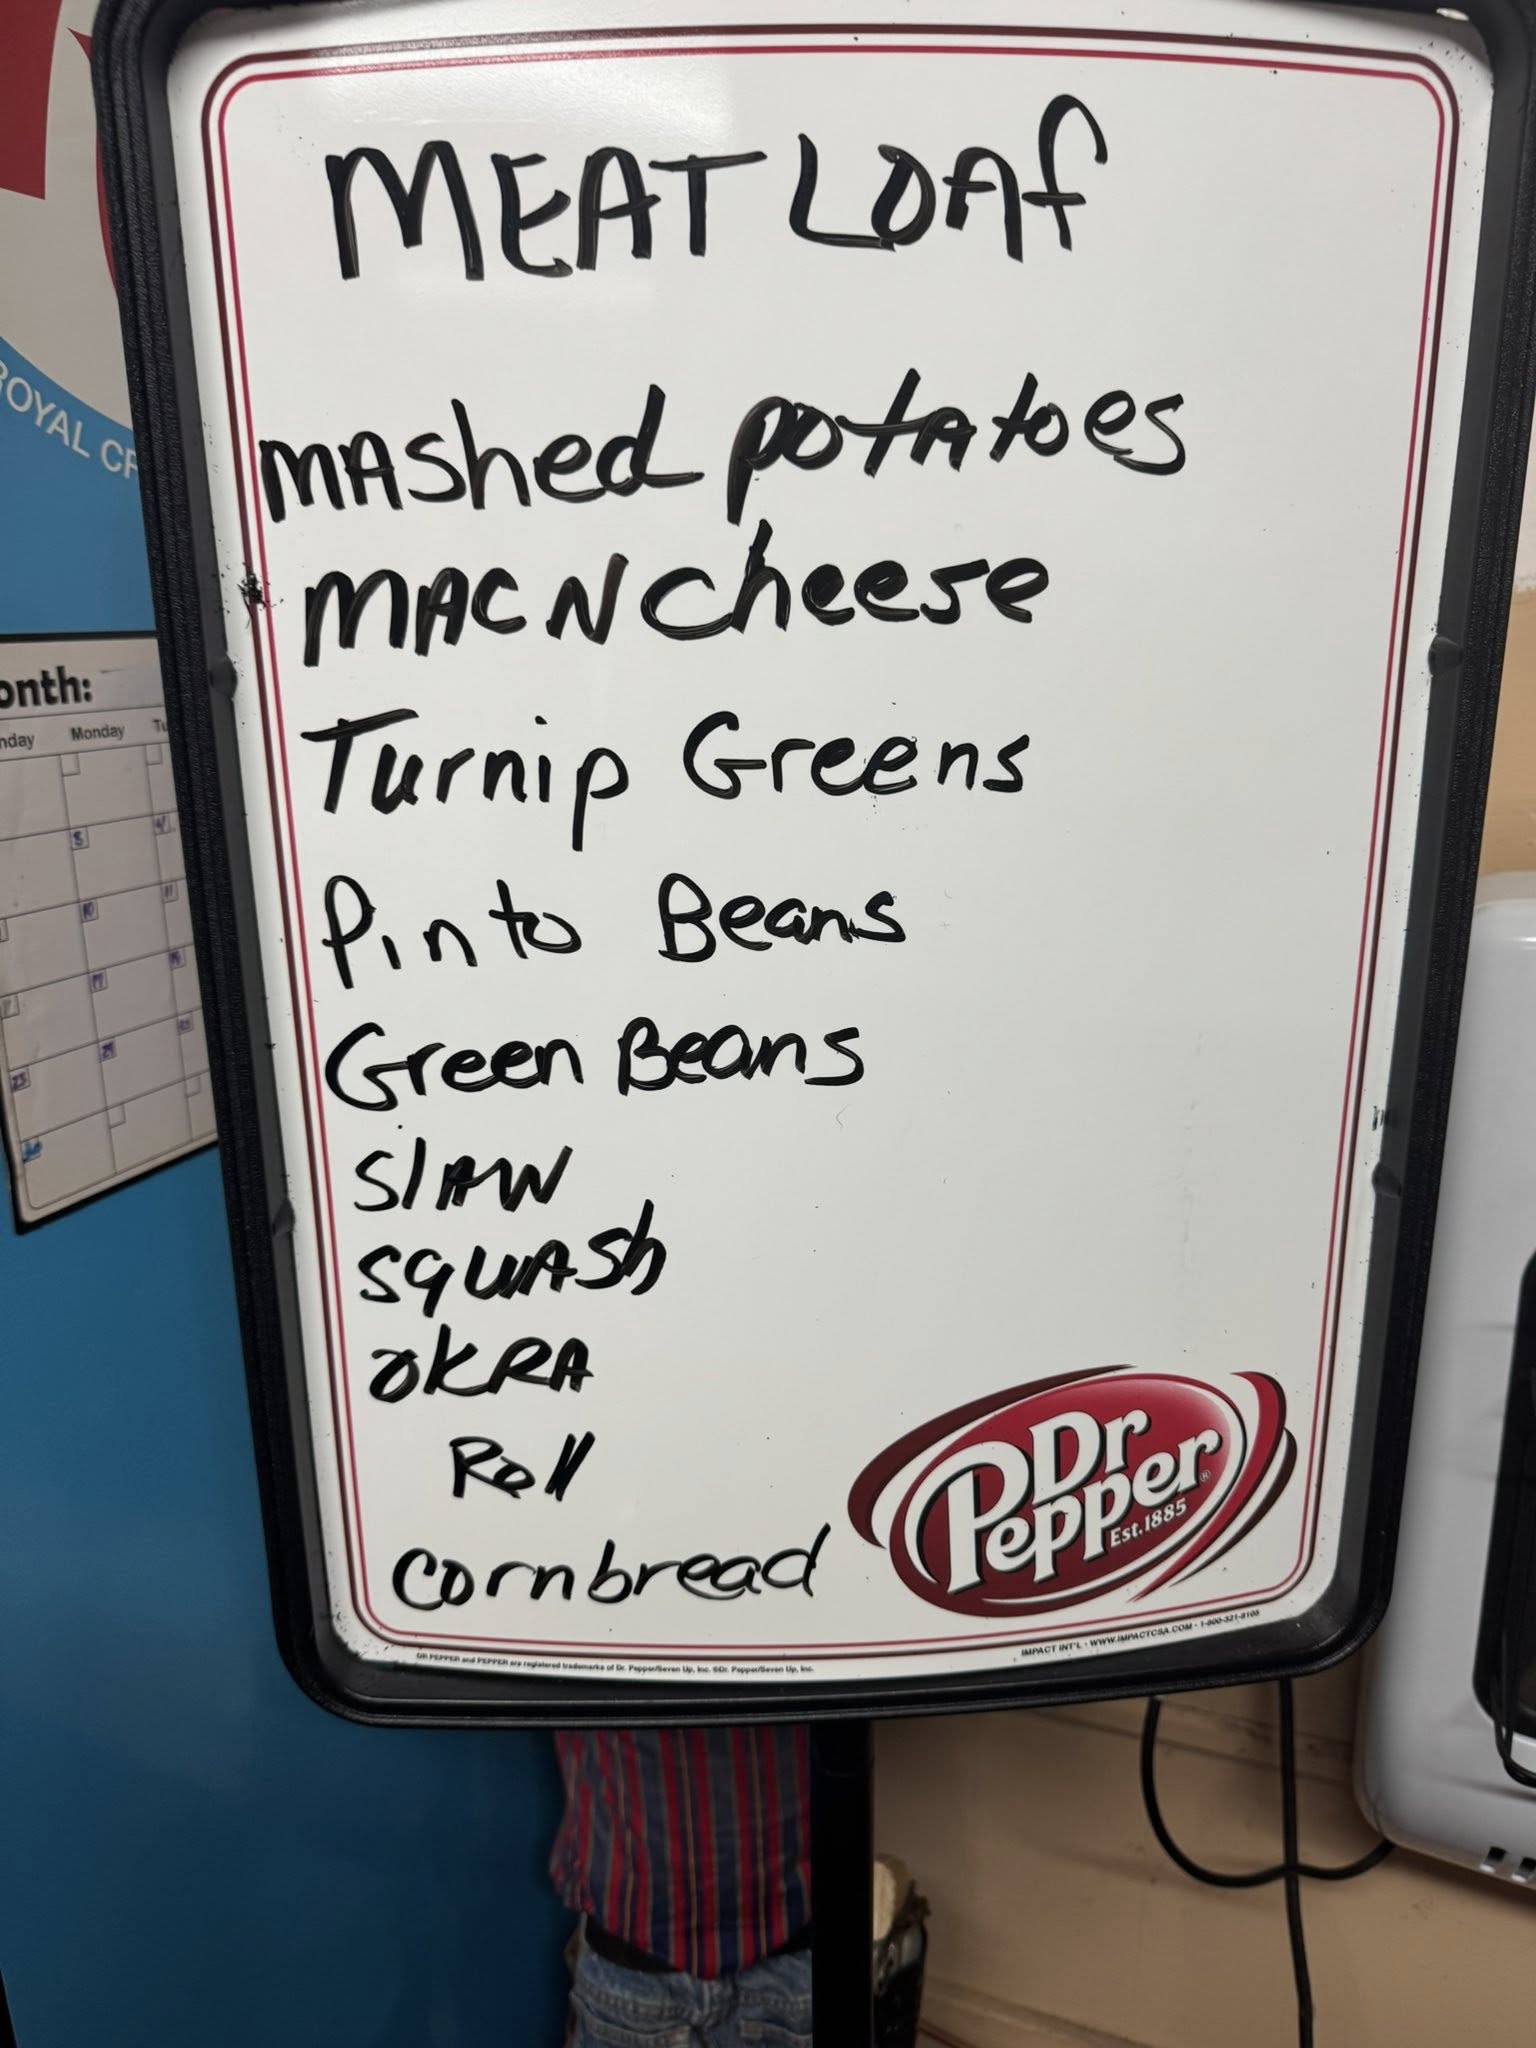 MEAT LOAf
MAShed potAtoes
MAC N Cheese
Turnip Greens
Pinto Beans
Green Beans
SlAW
SqUASh
OKRA
Roll
Cornbread
Dr
Pepper®
Est.1885
IMPACT INT'L • WWW.IMPACTCSA.COM • 1-800-321-8105
DR PEPPER and PEPPER are registered trademarks of Dr. Pepper/Seven Up, Inc. ©Dr. Pepper/Seven Up, Inc.
ROYAL CR
onth:
nday Monday Tu
8
10
11
23